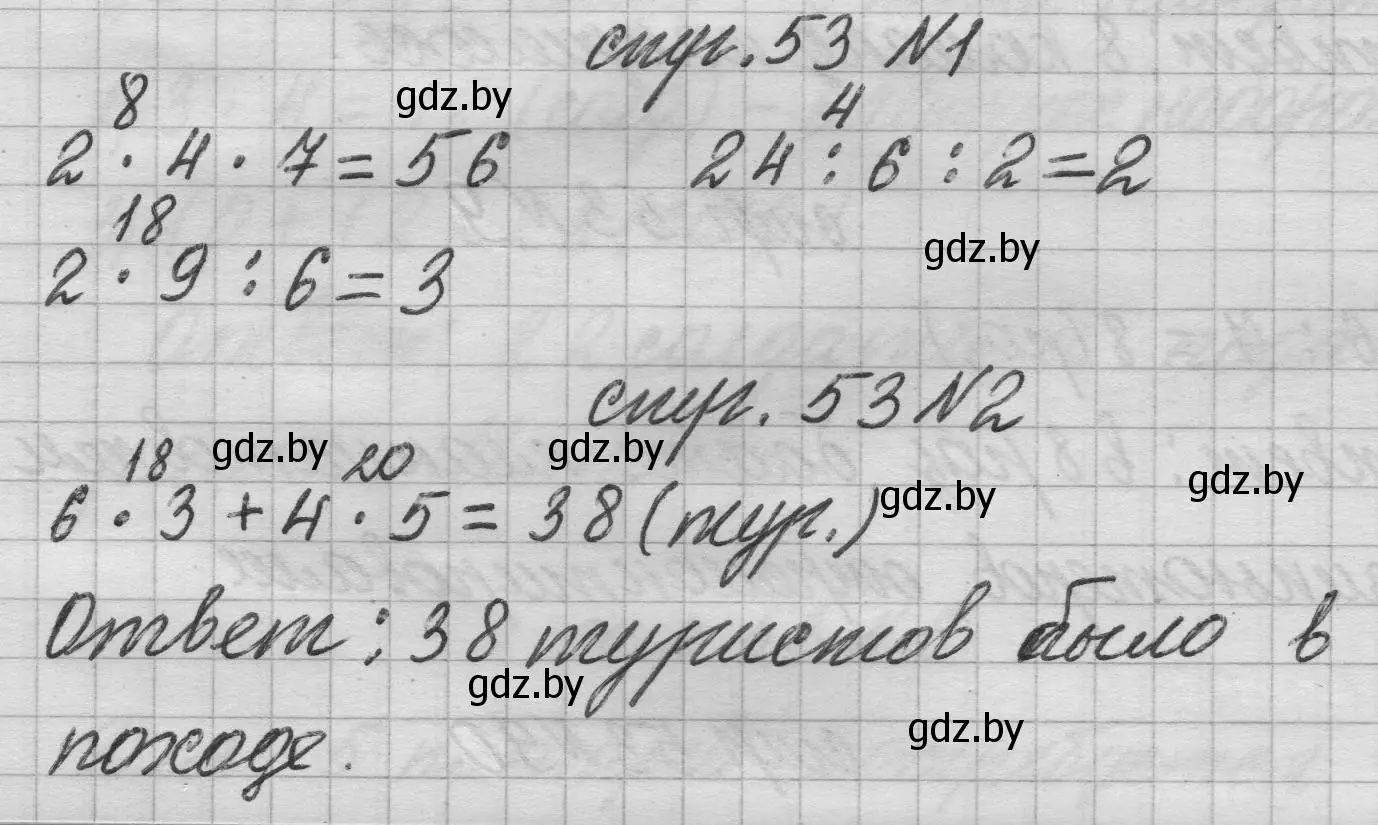 стр. 53 №1
gdz.by
8
4
2 · 4 · 7 = 56
24 : 6 : 2 = 2
18
gdz.by
2 · 9 : 6 = 3
стр. 53 №2
18
gdz.by
20
gdz.by
gdz.by
6 · 3 + 4 · 5 = 38 (тур.)
gdz.by
Ответ: 38 туристов было в
gdz.by
походе.
gdz.by